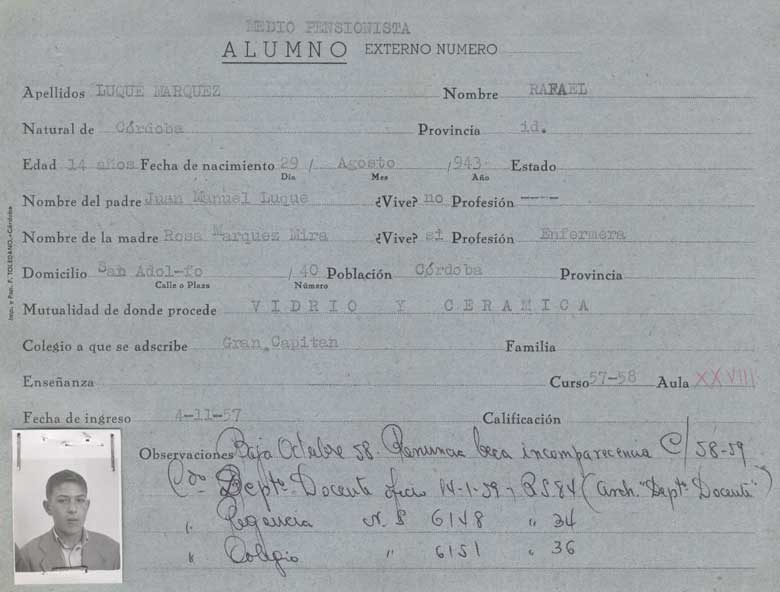 MEDIO PENSIONISTA
ALUMNO EXTERNO NUMERO
Apellidos LUQUE MARQUEZ Nombre RAFAEL
Natural de Córdoba Provincia id.
Edad 14 años Fecha de nacimiento 29 / Agosto /943 Estado
Día Mes Año
Nombre del padre Juan Manuel Luque ¿Vive? no Profesión ----
Nombre de la madre Rosa Marquez Mira ¿Vive? si Profesión Enfermera
Domicilio San Adol-fo / 40 Población Córdoba Provincia
Calle o Plaza Número
Mutualidad de donde procede VIDRIO Y CERAMICA
Colegio a que se adscribe Gran Capitan Familia
Enseñanza Curso 57-58 Aula XXVIII
Fecha de ingreso 4-11-57 Calificación
Observaciones Baja Octubre 58. Renuncia beca incomparecencia C/ 58-59
Deptº Docente oficio 14-1-59 (Arch. "Deptº Docente")
" Regencia N.S 6148 " 34
" Colegio " 6151 " 36
Imp. y Pap. F. TOLEDANO.-Córdoba